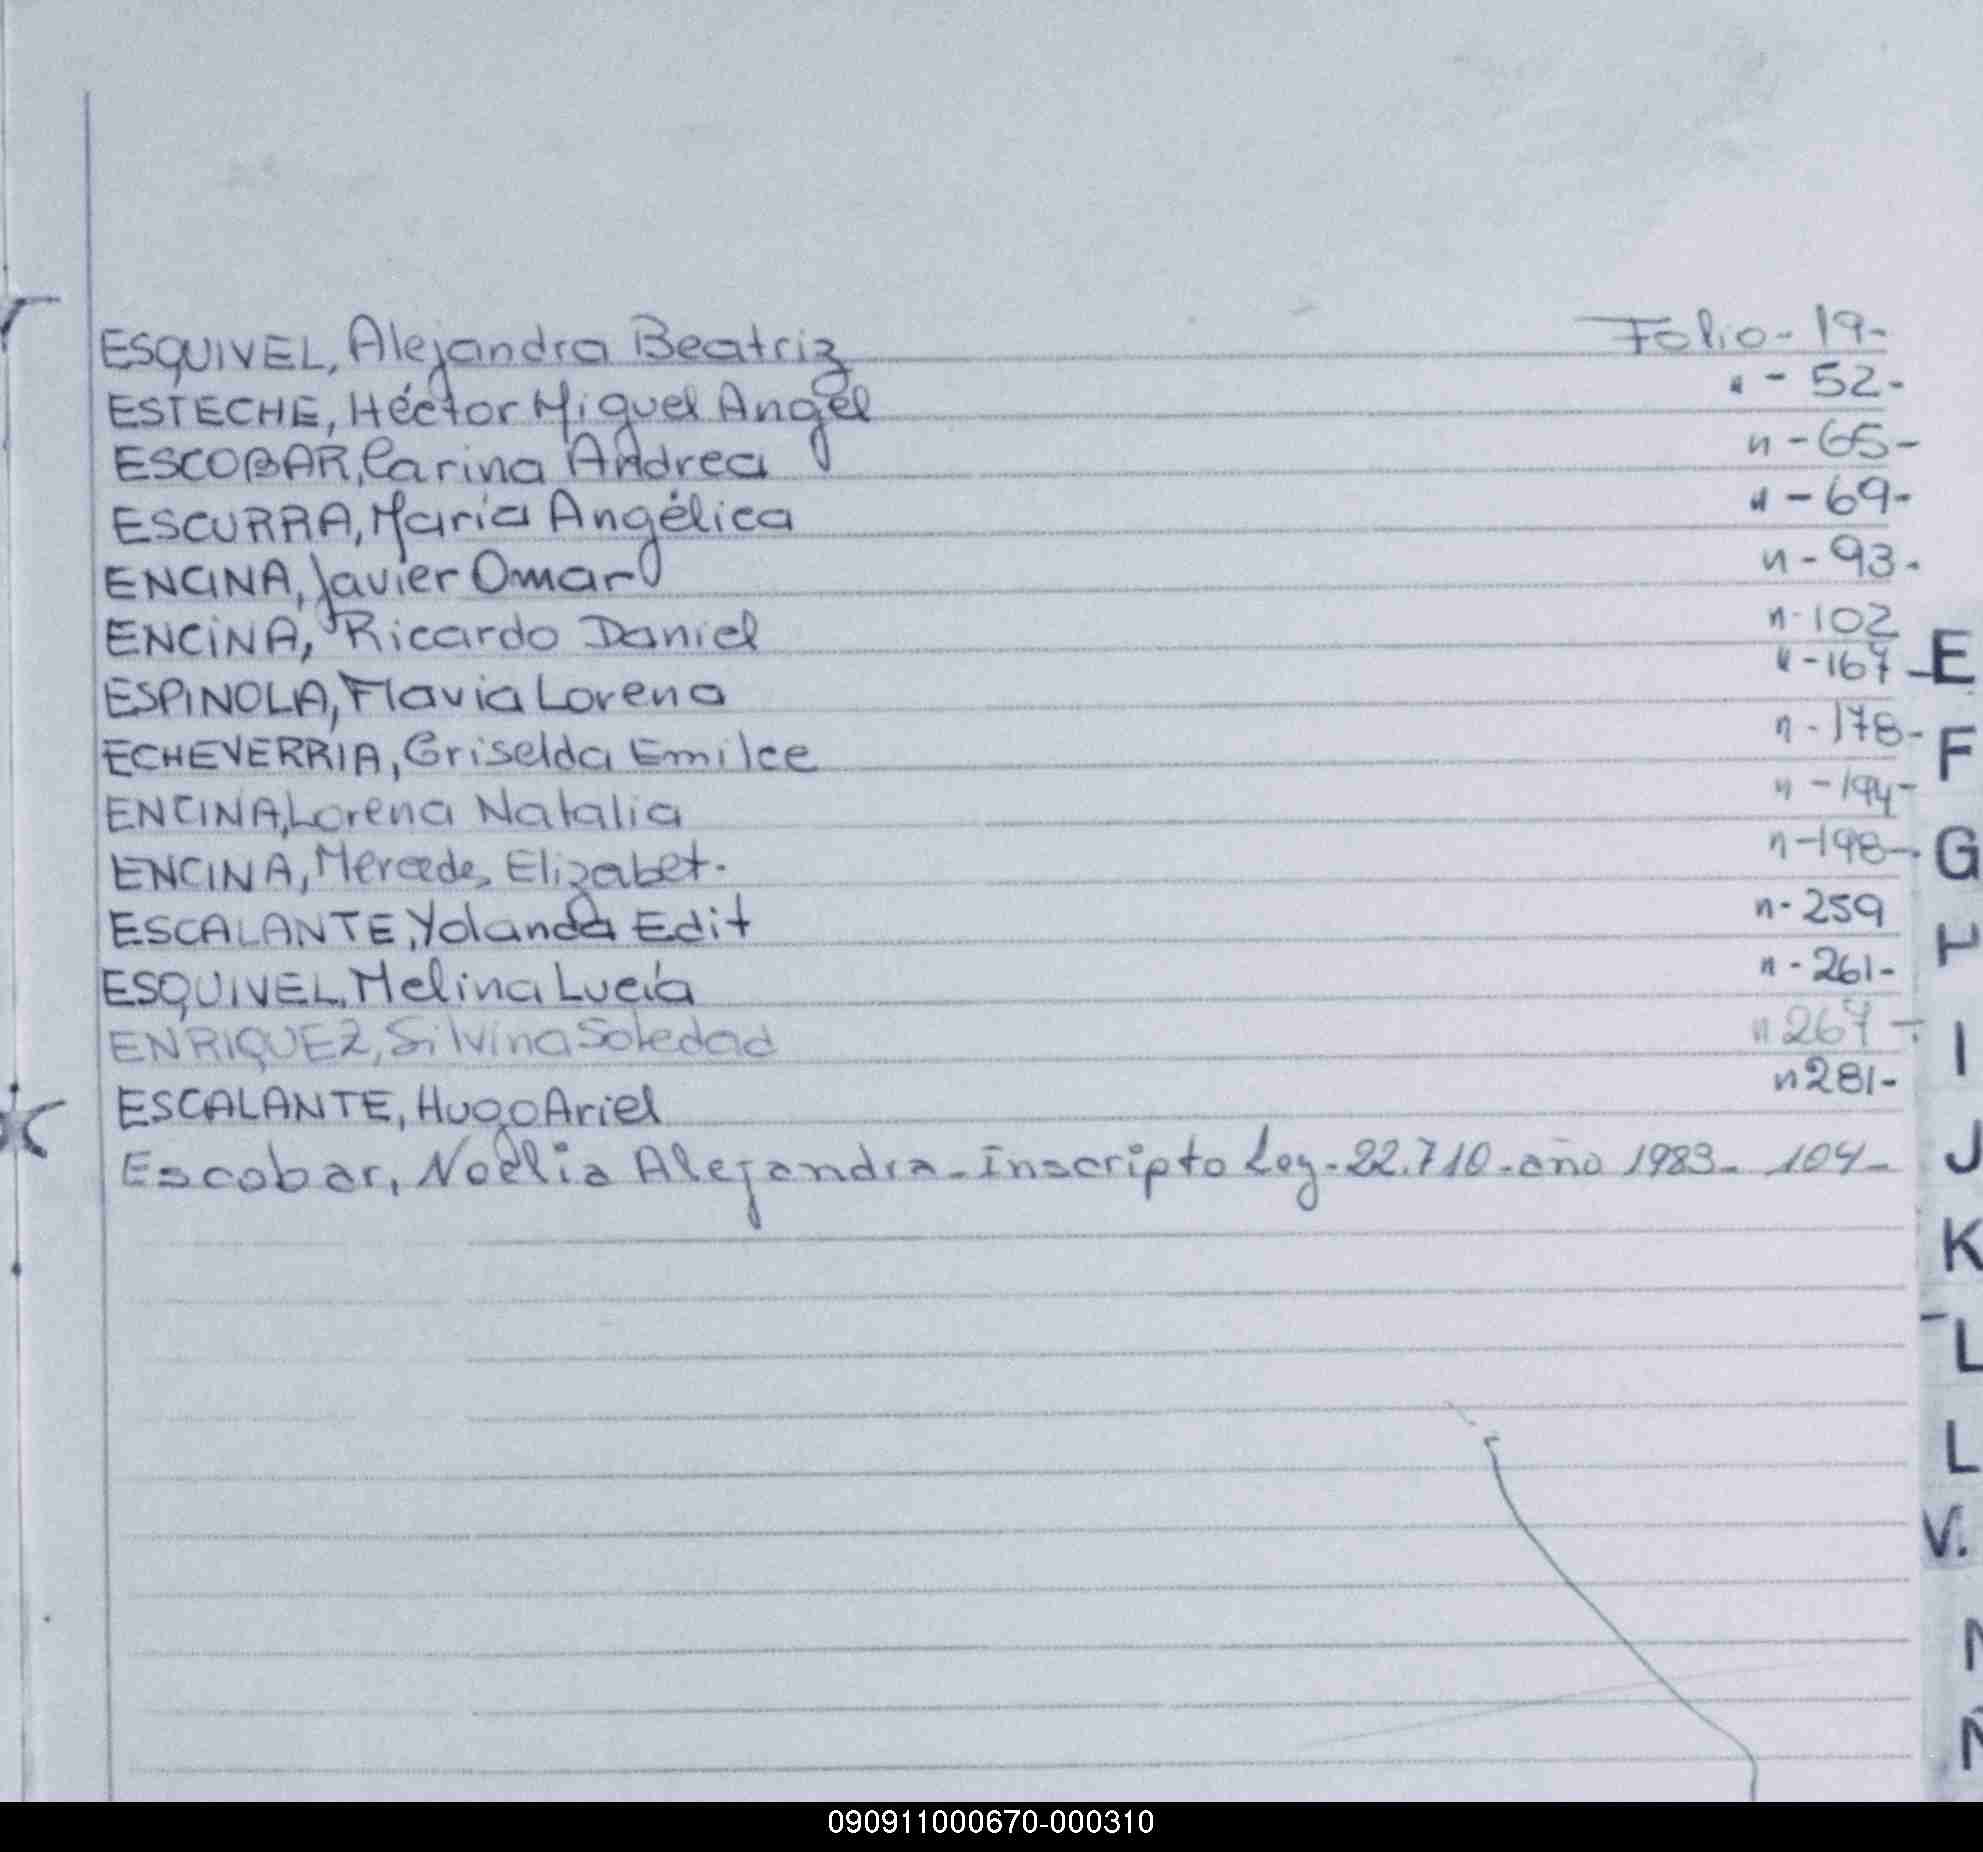 ESQUIVEL, Alejandra Beatriz Folio-19-
ESTECHE, Héctor Miguel Angel " - 52-
ESCOBAR, Carina Andrea " - 65-
ESCURRA, María Angélica " - 69-
ENCINA, Javier Omar " - 93-
ENCINA, Ricardo Daniel " - 102
ESPINOLA, Flavia Lorena " - 167-
ECHEVERRIA, Griselda Emilce " - 178-
ENCINA, Lorena Natalia " - 194-
ENCINA, Mercedes Elizabet. " - 198-
ESCALANTE, Yolanda Edit " - 259
ESQUIVEL, Melina Lucía " - 261-
ENRIQUEZ, Silvina Soledad " 267-
ESCALANTE, Hugo Ariel " 281-
Escobar, Noelia Alejandra - Inscripto Ley - 22.710 - año 1983 - 104-
E
F
G
H
I
J
K
L
L
V.
N
090911000670-000310